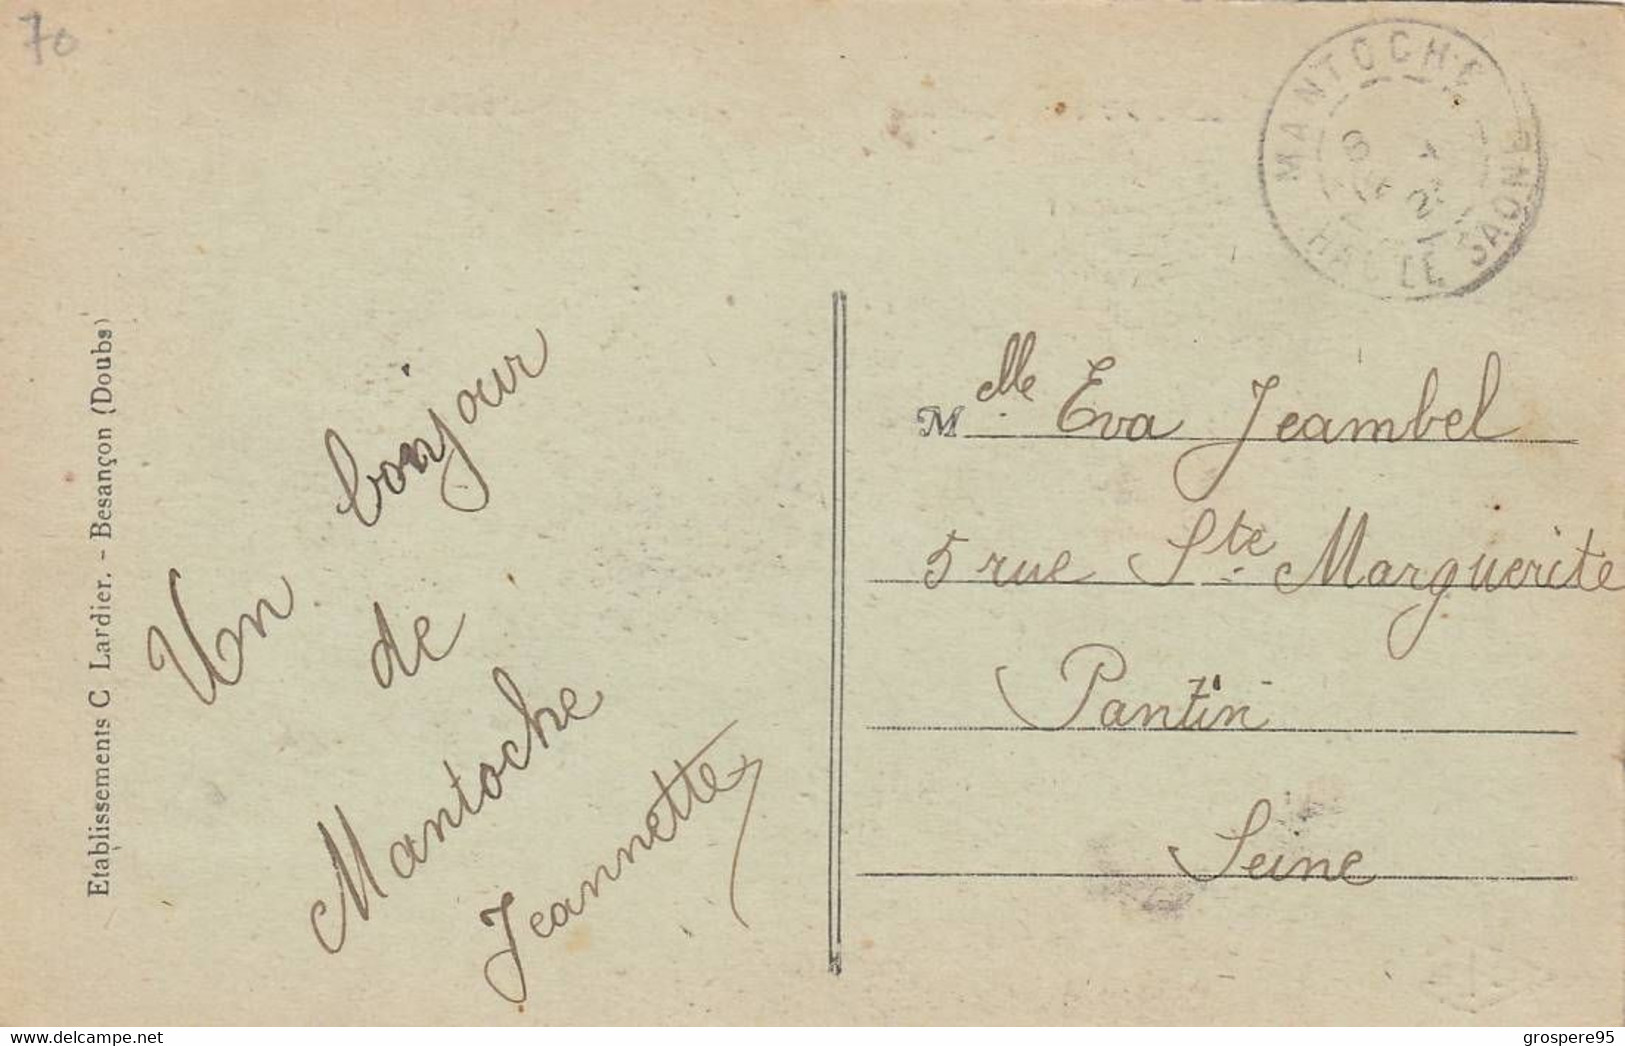 70
MANTOCHE
HAUTE SAONE
Etablissements C Lardier. - Besançon (Doubs)
Un bonjour
de
Mantoche
Jeannette
Mlle Eva Jeambel
5 rue Ste Marguerite
Pantin
Seine
www.delcampe.net
grospere95